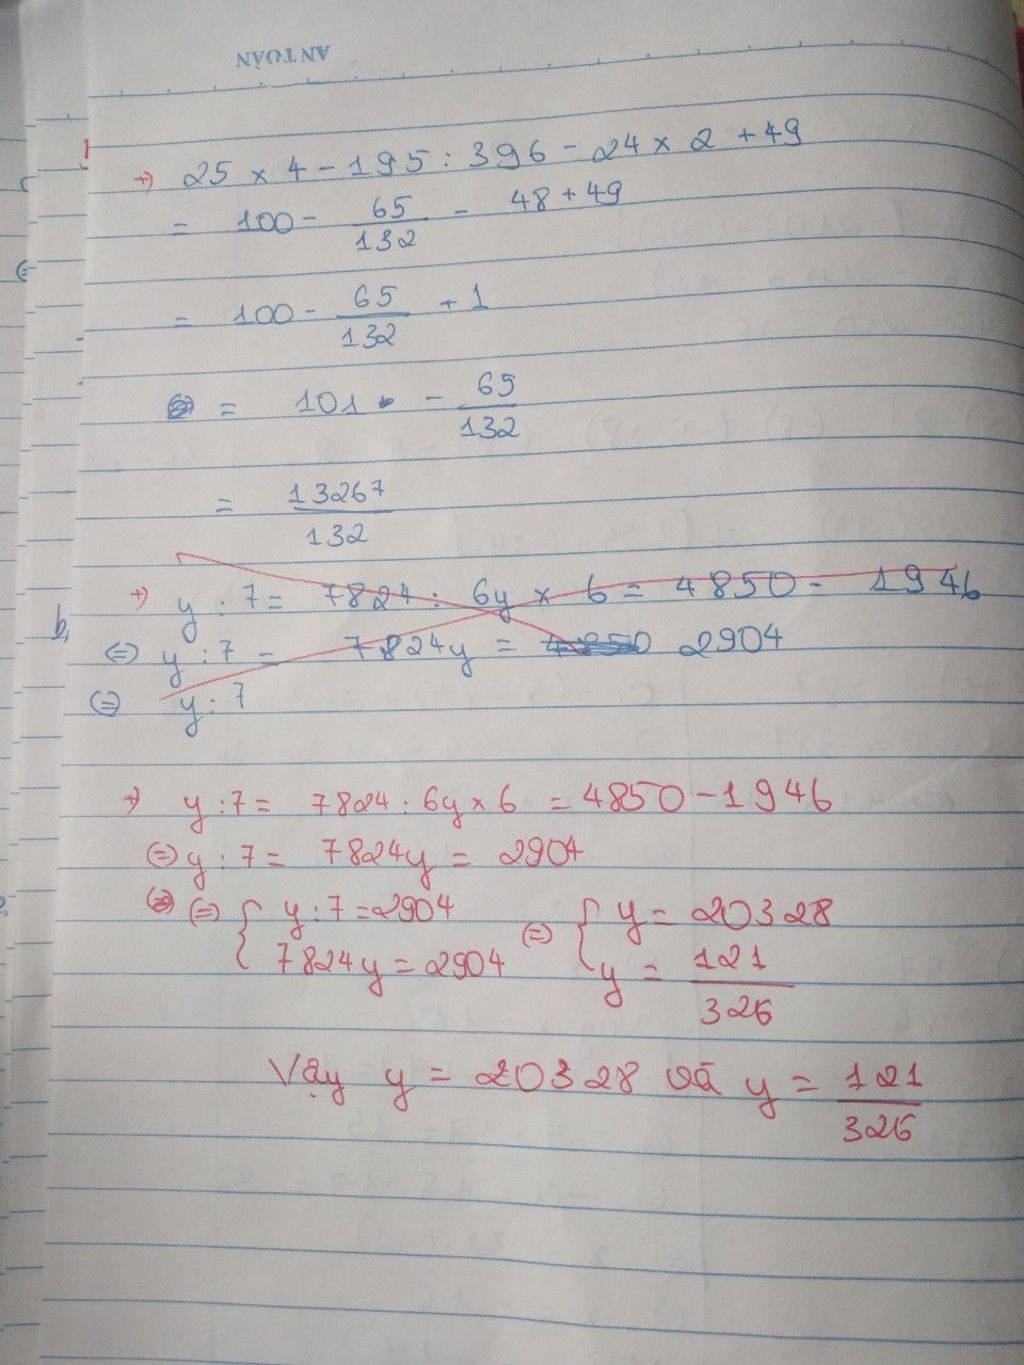 AN TOÀN
+) 25 × 4 - 195 : 396 - 24 × 2 + 49
= 100 - 65/132 - 48 + 49
= 100 - 65/132 + 1
= 101 - 65/132
= 13267/132
b, +) y : 7 = 7824 : 6y × 6 = 4850 - 1946
⇔ y : 7 = 7824y = 2904
⇔ y : 7
+) y : 7 = 7824 : 6y × 6 = 4850 - 1946
⇔ y : 7 = 7824y = 2904
⇔ { y : 7 = 2904 ⇔ { y = 20328
7824y = 2904 y = 121/326
Vậy y = 20328 và y = 121/326